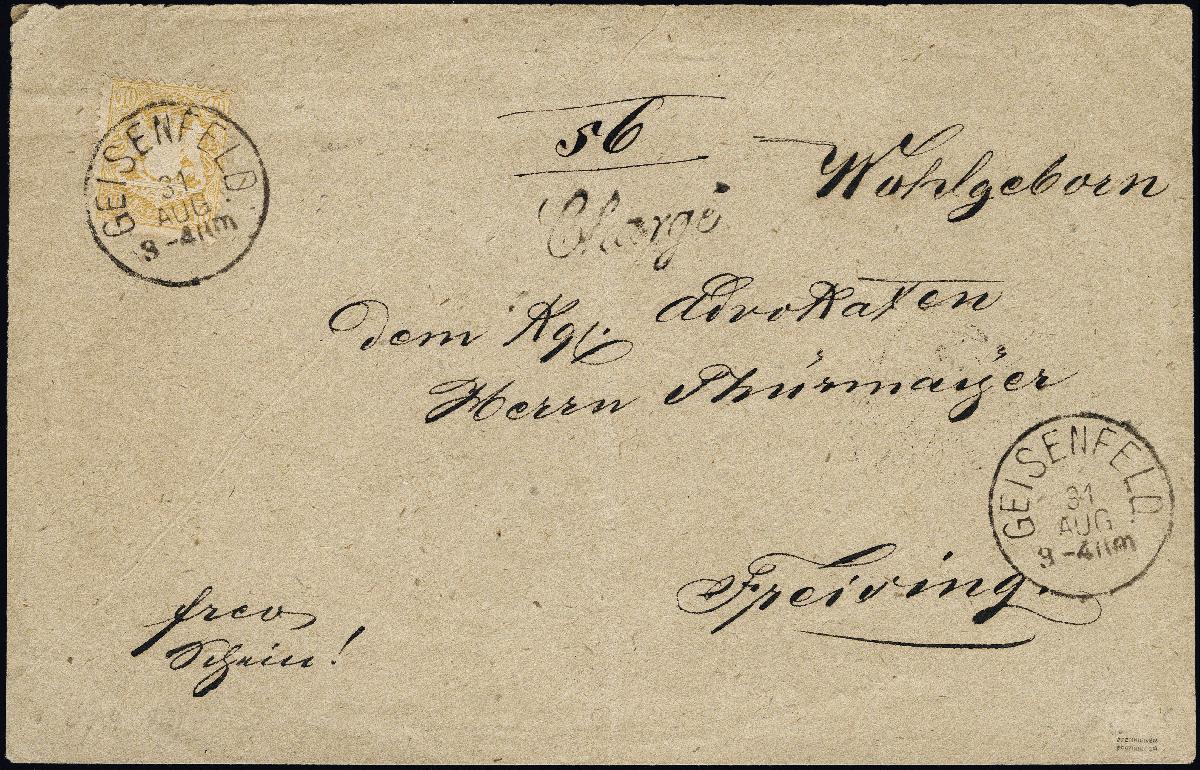 GEISENFELD.
31
AUG.
3-4 Nm
56
Chargé
Wohlgeborn
dem Kgl. Advokaten
Herrn Thürmayer
GEISENFELD.
31
AUG.
3-4 Nm
Freising.
frco
Schein!